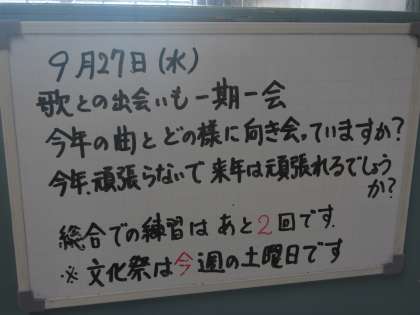 9月27日(水)
歌との出会いも一期一会
今年の曲とどの様に向き会っていますか?
今年、頑張らないで来年は頑張れるでしょう
か?
総合での練習はあと2回です.
※文化祭は今週の土曜日です